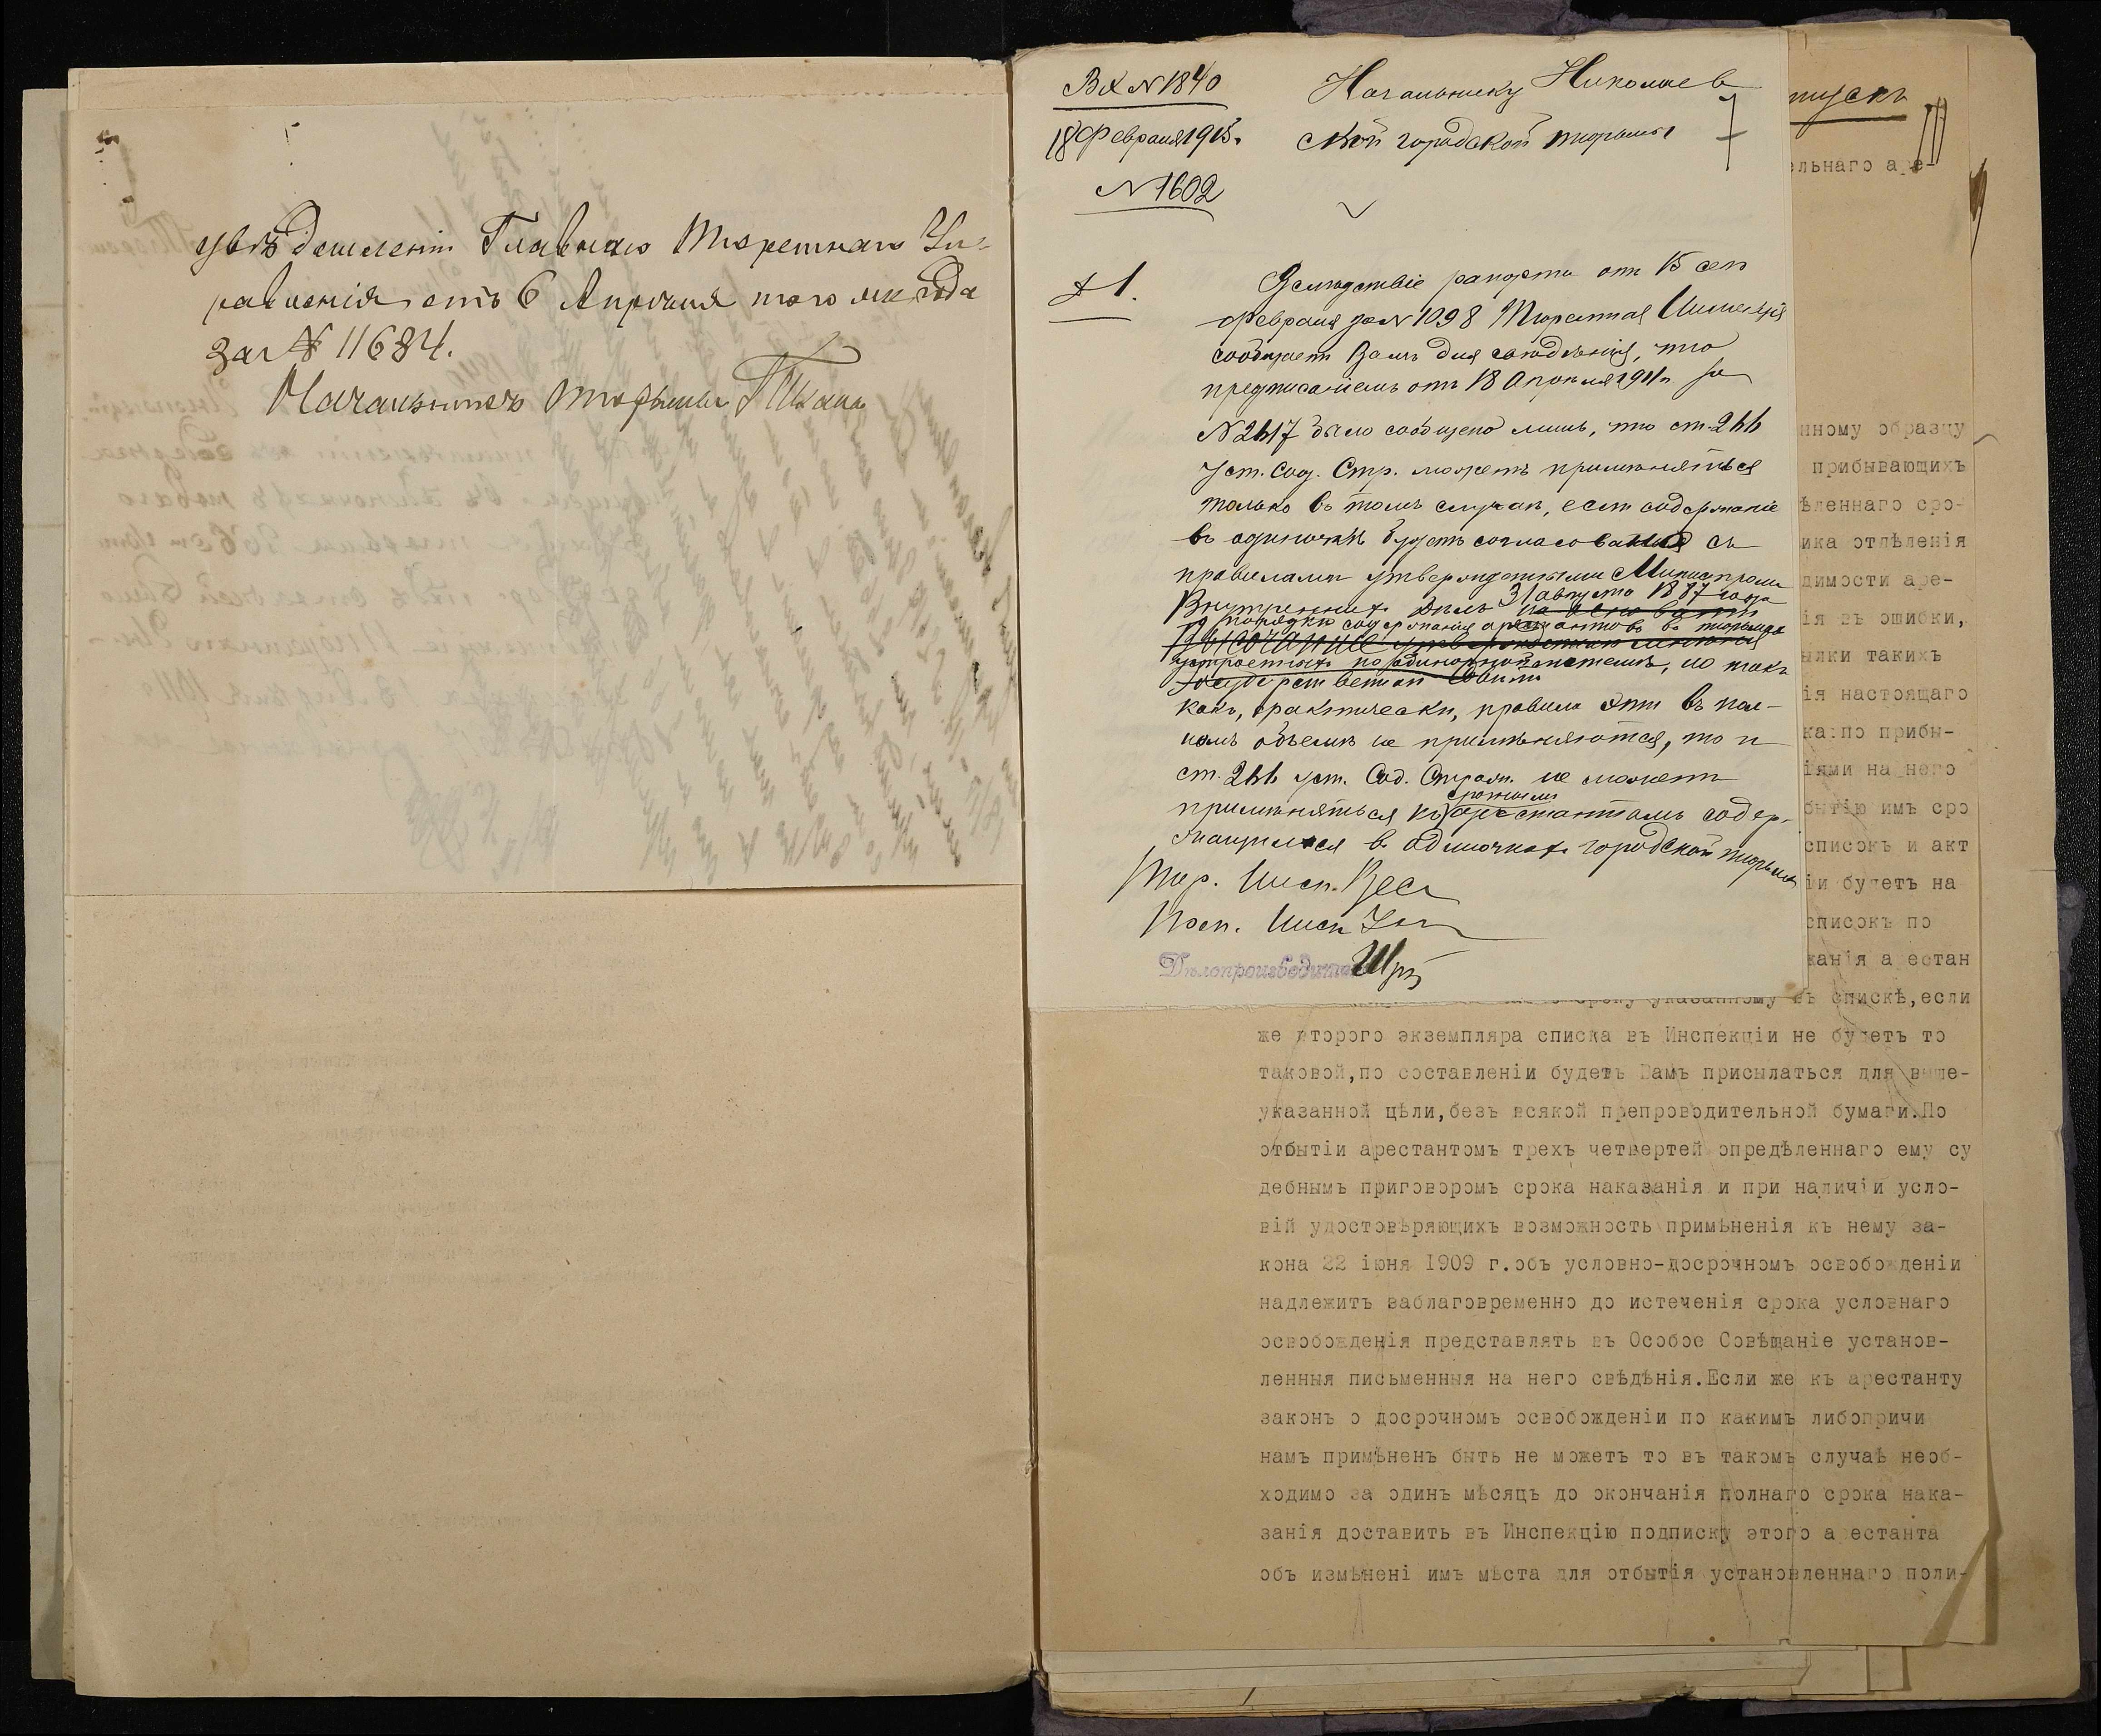 увѣдомленіи Главнаго Тюремнаго Уп-
равленія отъ 6 Апрѣля того же года
за № 11684.
Начальникъ тюрьмы
Вх №1840
18 Февраля 191
№1602
Начальнику Николаев
ской городской тюрьмы
Вслѣдствіе рапорта отъ 15 сего
Февраля за № 1098 Тюремная Инспекція
сообщаетъ Вамъ для свѣдѣнія, что
предписаніемъ отъ 18 Апрѣля 1911 г за
№ 2617 было сообщено лишь, что ст. 266
Уст. Сод. Стр. можетъ примѣняться
только въ томъ случаѣ, если содержаніе
въ одиночкѣ будетъ согласовано съ
правилами утвержденными Министромъ
Внутреннихъ Дѣлъ 31 августа 1887 года
о порядкѣ содержанія арестантовъ въ тюрьмахъ
устроенныхъ по одиночной системѣ, но такъ
какъ, практически, правила эти въ пол-
номъ объемѣ не примѣняются, то и
ст. 266 уст. Сод. Страж. не можетъ
примѣняться къ срочнымъ арестантамъ содер-
жащимся въ одиночкахъ городской тюрьмы
Тюр. Инсп.
Пом. Инсп
Дѣлопроизводитель
пускъ
ельнаго аре-
нному образцу
прибывающихъ
ѣленнаго сро-
ика отдѣленія
димости аре-
ія въ ошибки,
ылки такихъ
ія настоящаго
ка по прибы-
іями на него
бытію имъ сро
списокъ и акт
іи будетъ на
списокъ по
жанія арестан
сроку указанному въ спискѣ,если
же второго экземпляра списка въ Инспекціи не будетъ то
таковой,по составленіи будетъ Вамъ присылаться для выше-
указанной цѣли,безъ всякой препроводительной бумаги.По
отбытіи арестантомъ трехъ четвертей опредѣленнаго ему су
дебнымъ приговоромъ срока наказанія и при наличіи усло-
вій удостовѣряющихъ возможность примѣненія къ нему за-
кона 22 іюня 1909 г.объ условно-досрочномъ освобожденіи
надлежитъ заблаговременно до истеченія срока условнаго
освобожденія представлять въ Особое Совѣщаніе установ-
ленныя письменныя на него свѣдѣнія.Если же къ арестанту
законъ о досрочномъ освобожденіи по какимъ либопричи
намъ примѣненъ быть не можетъ то въ такомъ случаѣ необ-
ходимо за одинъ мѣсяцъ до окончанія полнаго срока нака-
занія доставить въ Инспекцію подписку этого арестанта
объ измѣнені имъ мѣста для отбытія установленнаго поли-